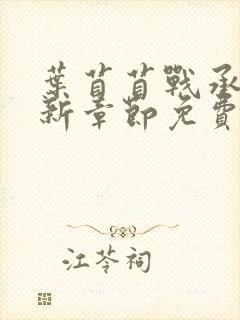 葉苜苜戰承
新章節免費
江苓祠